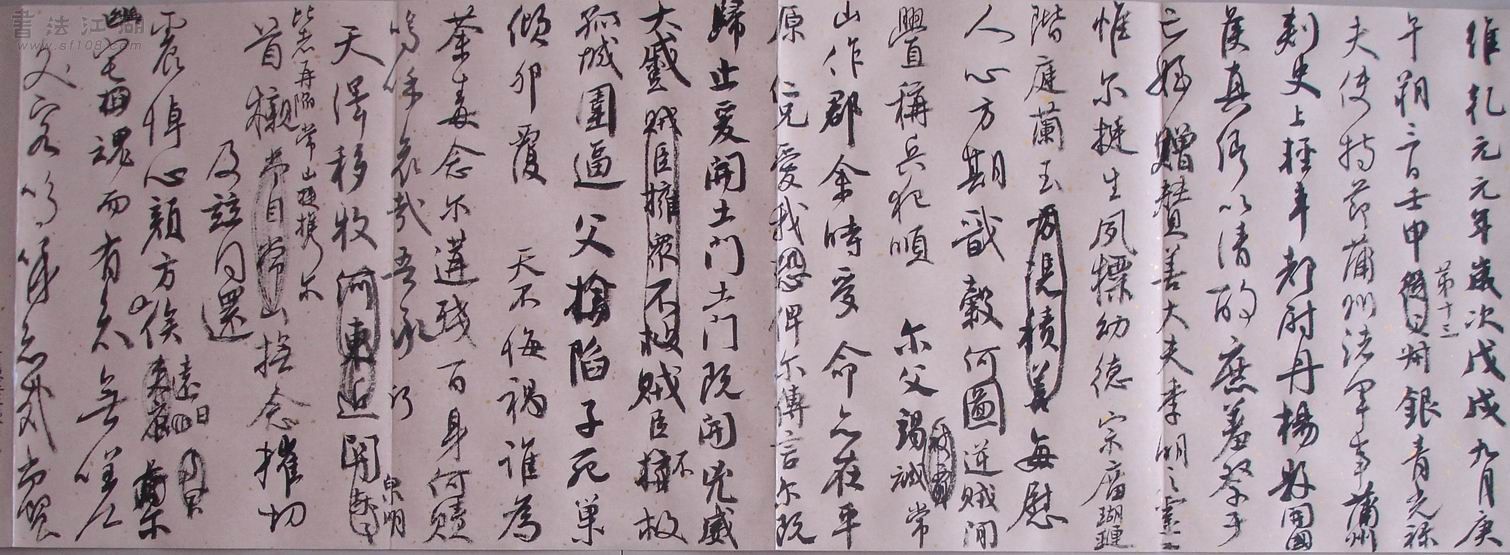 維乾元元年歲次戊戌九月庚
午朔三日壬申銀青光祿
第十三
夫使持節蒲州諸軍事蒲州
刺史上輕車都尉丹楊縣開國
侯真卿以清酌庶羞祭于
亡姪贈贊善大夫季明之靈
惟尔挺生夙標幼德宗廟瑚璉
階庭蘭玉方憑積善每慰
人心方期戩穀何圖逆賊閒
釁稱兵犯順 尔父竭誠常
山作郡余時受命亦在平
原仁兄愛我恐俾尔傳言尔既
歸止爰開土門土門既開兇威
大蹙賊臣擁衆不救賊臣擁不救
孤城圍逼父擒陷子死巢
傾卵覆 天不悔禍誰為
荼毒念尔遘殘百身何贖
嗚呼哀哉吾承
天澤移牧河東近
泉明
比者再陷常山提攜尔
首櫬常自常山撫念摧切
及茲同還
震悼心顏方俟
遠日
幽宅魂而有知無嗟久
客嗚呼哀哉尚饗
書法江湖
www.sf108.com